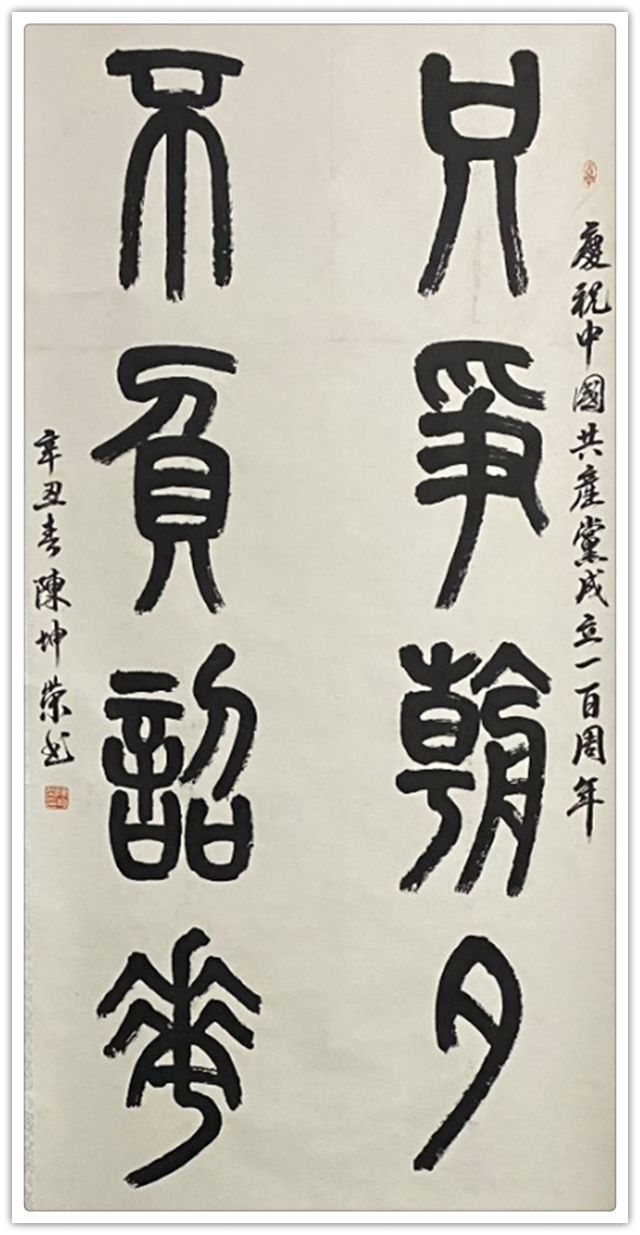 慶祝中國共產黨成立一百周年
只爭朝夕
不負韶華
辛丑春陳坤榮书